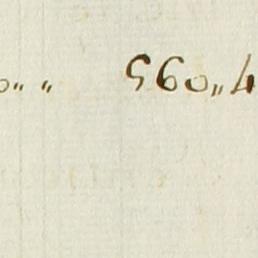 0„ „ 560„4